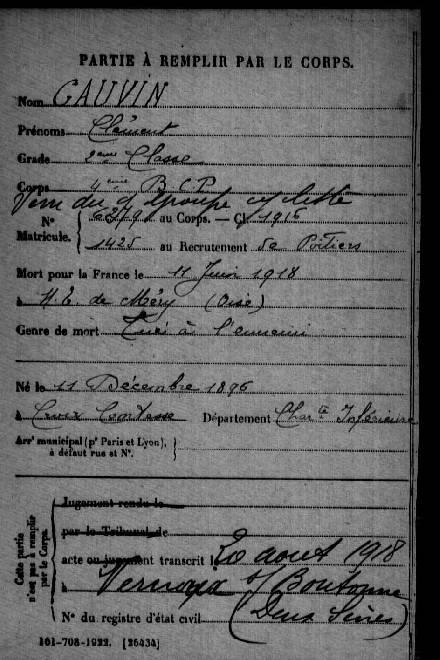 PARTIE À REMPLIR PAR LE CORPS.
Nom GAUVIN
Prénoms Clément
Grade 2ème Classe
Corps 4ème B.C.P.
Venu du Groupe cycliste
N° Matricule. au Corps. — Cl. 1916
1425 au Recrutement de Poitiers
Mort pour la France le 11 Juin 1918
à N. E. de Méry (Oise)
Genre de mort Tué à l'ennemi
Né le 11 Décembre 1896
à Croix Comtesse Département Charte Inférieure
Arrt municipal (pr Paris et Lyon), à défaut rue et N°.
Cette partie n'est pas à remplir par le Corps.
Jugement rendu le
par le Tribunal de
acte ou jugement transcrit le 20 août 1918
à Vernoux s/ Boutonne
N° du registre d'état civil (Deux Sèvres)
161-708-1922. [26434]